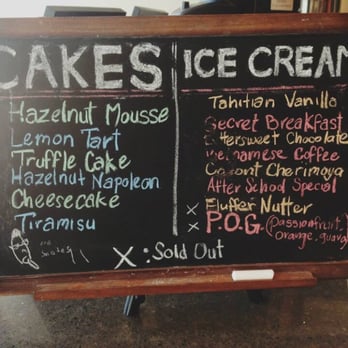 CAKES
Hazelnut Mousse
Lemon Tart
Truffle Cake
Hazelnut Napoleon
Cheesecake
Tiramisu
ICE CREAM
Tahitian Vanilla
Secret Breakfast
Bittersweet Chocolate
Vietnamese Coffee
Coconut Cherimoya
After School Special
x Fluffer Nutter
x P.O.G. (passionfruit,
orange, guava)
X: Sold Out